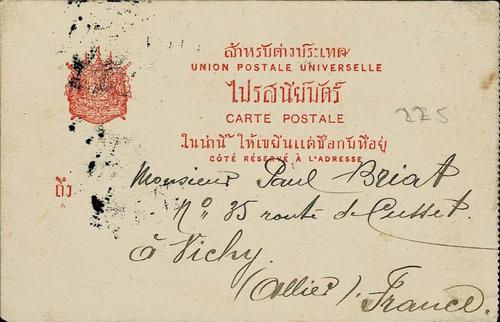 สำหรับต่างประเทศ
UNION POSTALE UNIVERSELLE
ไปรสนียบัตร์
CARTE POSTALE
275
ในน่านี้ ให้เขยีนแต่ชื่อกับที่อยู่
CÔTÉ RÉSERVÉ À L'ADRESSE
ถึง
Monsieur Paul Briat
Nº 35 route de Cusset.
à Vichy.
(Allier). France.